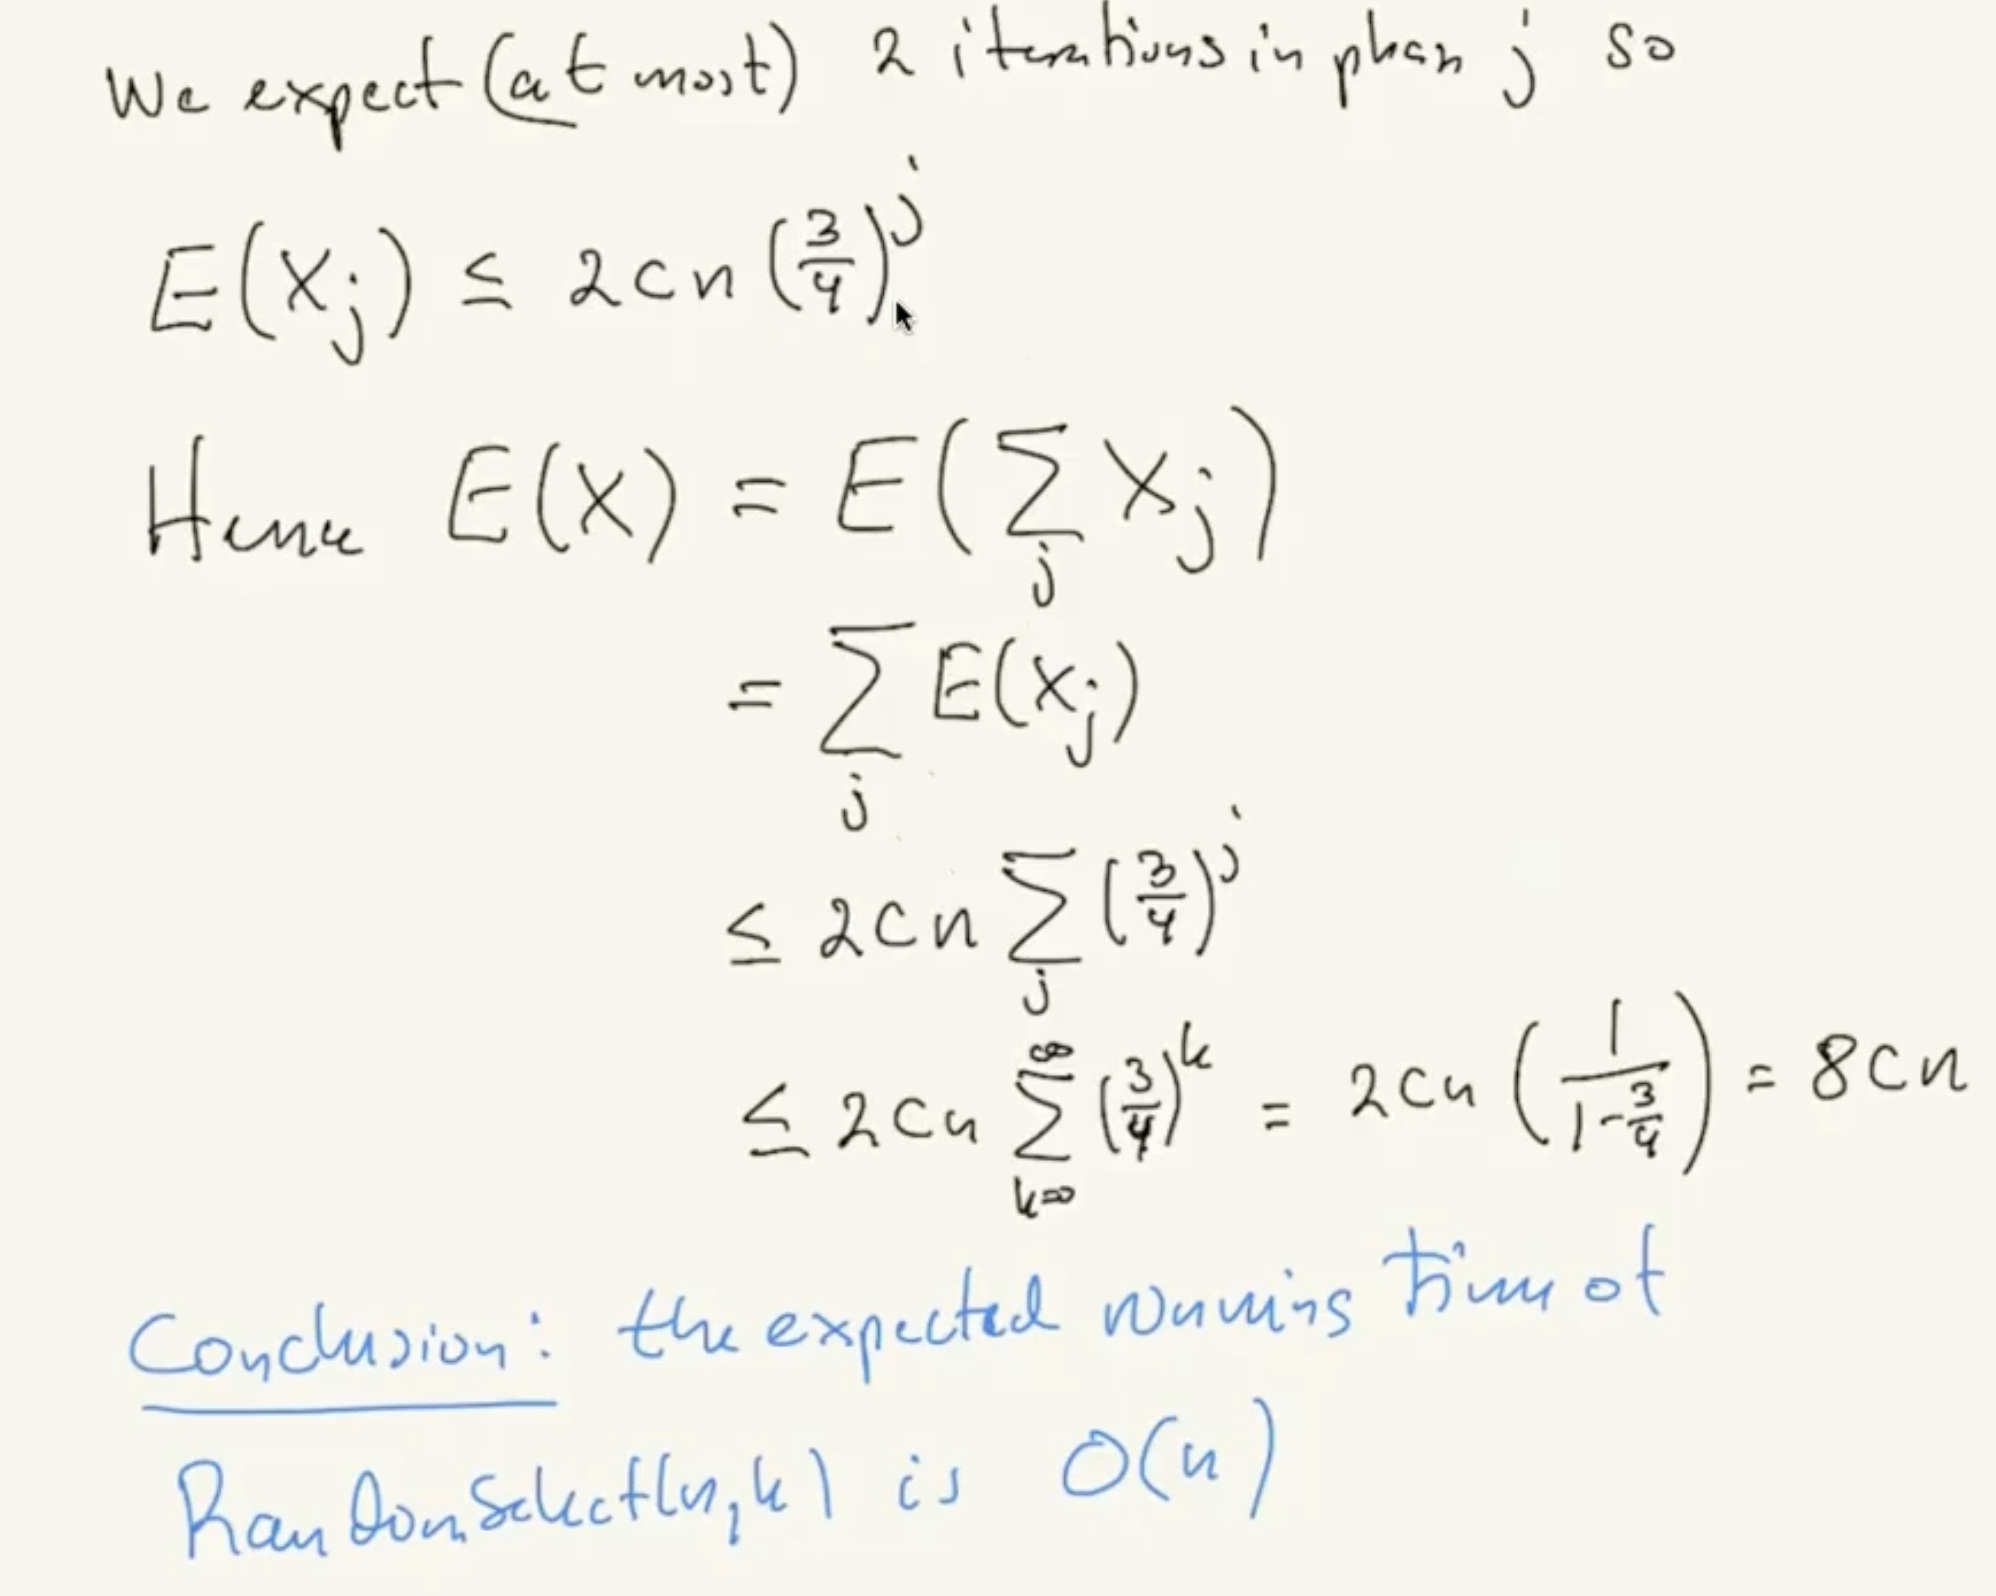 We expect (at most) 2 iterations in phase j so
E(Xj) ≤ 2cn (3/4)^j
Hence E(X) = E(∑_j Xj)
= ∑_j E(Xj)
≤ 2cn ∑_j (3/4)^j
≤ 2cn ∑_{k=0}^∞ (3/4)^k = 2cn (1/(1-3/4)) = 8cn
Conclusion: the expected running time of
RandomSelect(n,k) is O(n)